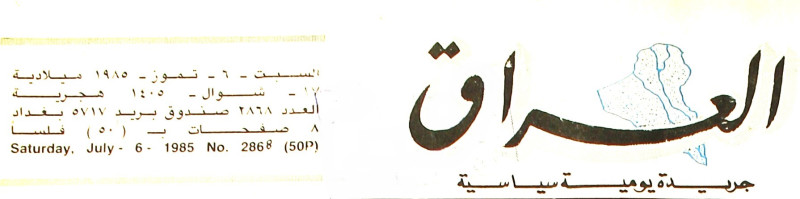 العراق
جريدة يومية سياسية
السبت - ٦ - تموز - ١٩٨٥ ميلادية
١٧ - شوال - ١٤٠٥ هجرية
العدد ٢٨٦٨ صندوق بريد ٥٧١٧ بغداد
٨ صفحات بـ (٥٠) فلسا
Saturday, July - 6 - 1985 No. 2868 (50P)